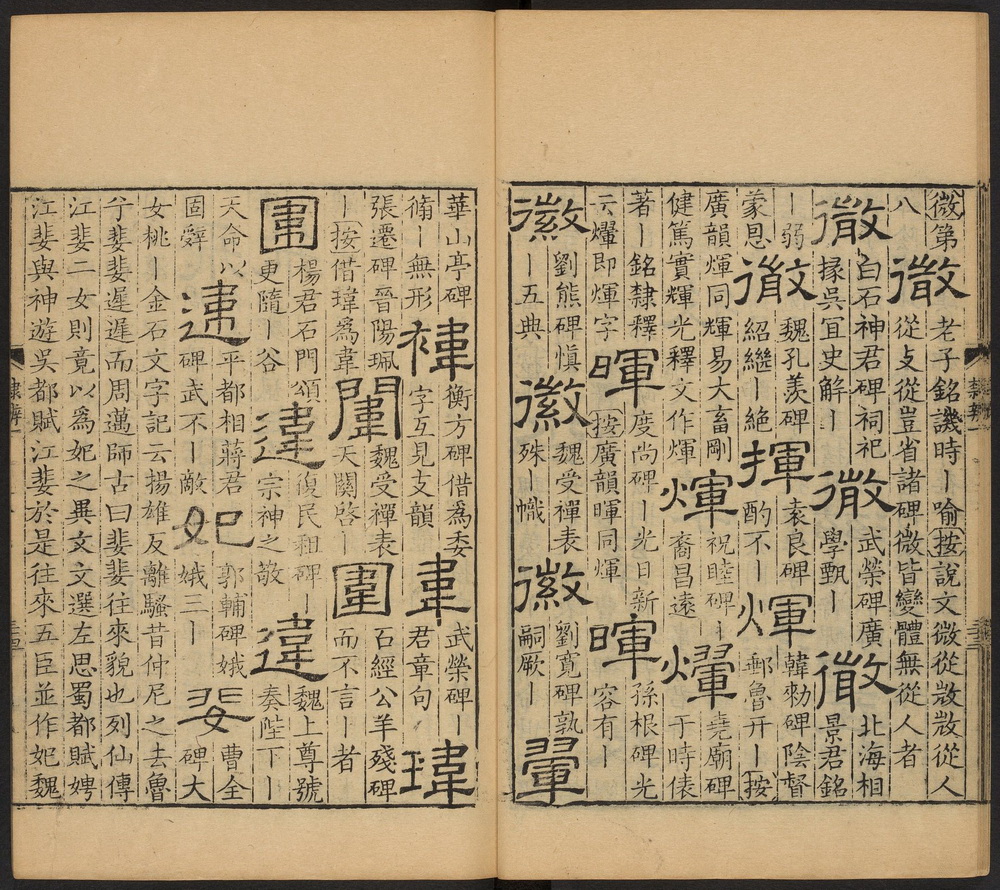 微第八微老子銘譏時｜喻按說文微從敚敚從人從攴從豈省諸碑微皆變體無從人者
微白石神君碑祠祀掾吳宜史解｜微武榮碑廣學甄｜微北海相景君銘
｜弱蒙恩微魏孔羨碑紹繼｜絕揮袁良碑酌不｜煇韓勑碑陰督郵魯开｜按
廣韻煇同輝易大畜剛健篤實輝光釋文作煇煇祝睦碑｜裔昌遠爗堯廟碑于時俵
著｜銘隸釋云爗即煇字暉度尚碑｜光日新按廣韻暉同煇暉孫根碑光容有｜
徽劉熊碑愼｜五典徽魏受禪表殊｜幟徽劉寬碑孰嗣厥｜翬
隸辨
華山亭碑脩｜無形褘衡方碑借為委字互見支韻韋武榮碑｜君章句瑋
張遷碑晉陽珮｜按借瑋為韋闈魏受禪表天關啓｜圍石經公羊殘碑而不言｜者
圍楊君石門頌更隨｜谷違復民租碑｜宗神之敬違魏上尊號奏陛下｜
天命以固辭違平都相蔣君碑武不｜敵妃郭輔碑娥娥三｜婓曹全碑大
女桃｜金石文字記云揚雄反離騷昔仲尼之去魯兮婓婓遲遲而周邁師古曰婓婓往來貌也列仙傳
江婓二女則竟以為妃之異文文選左思蜀都賦娉江婓與神遊吳都賦江婓於是往來五臣並作妃魏